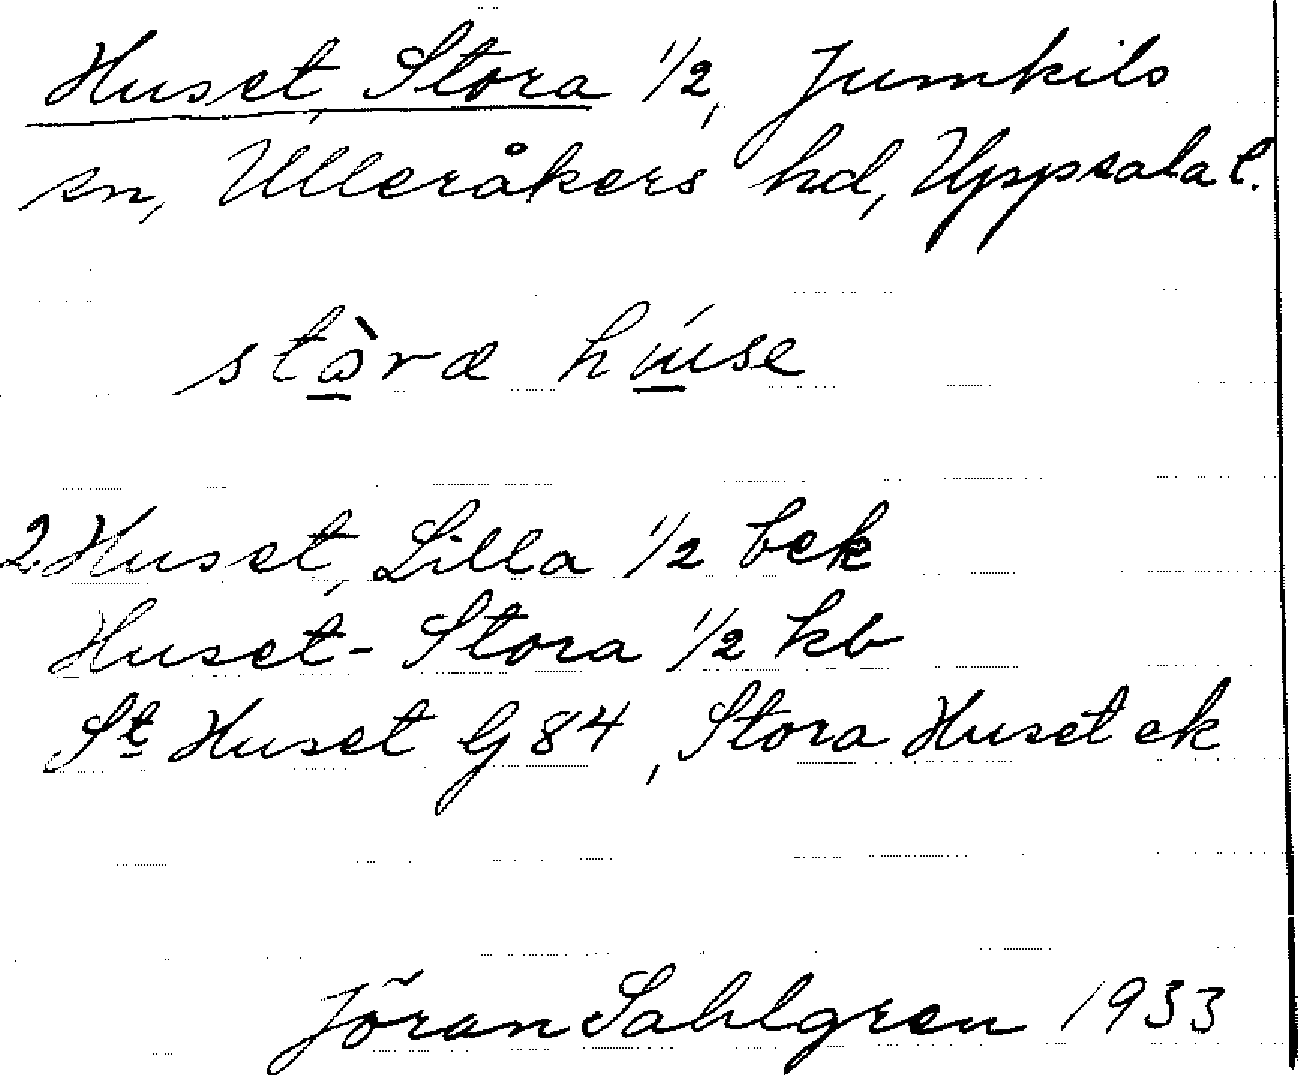 Huset, Stora 1/2, Jumkils
sn, Ulleråkers hd, Uppsala l.
stòra húse
2. Huset, Lilla 1/2 bek
Huset- Stora 1/2 kb
St Huset G 84, Stora Huset ek
Jöran Sahlgren 1933